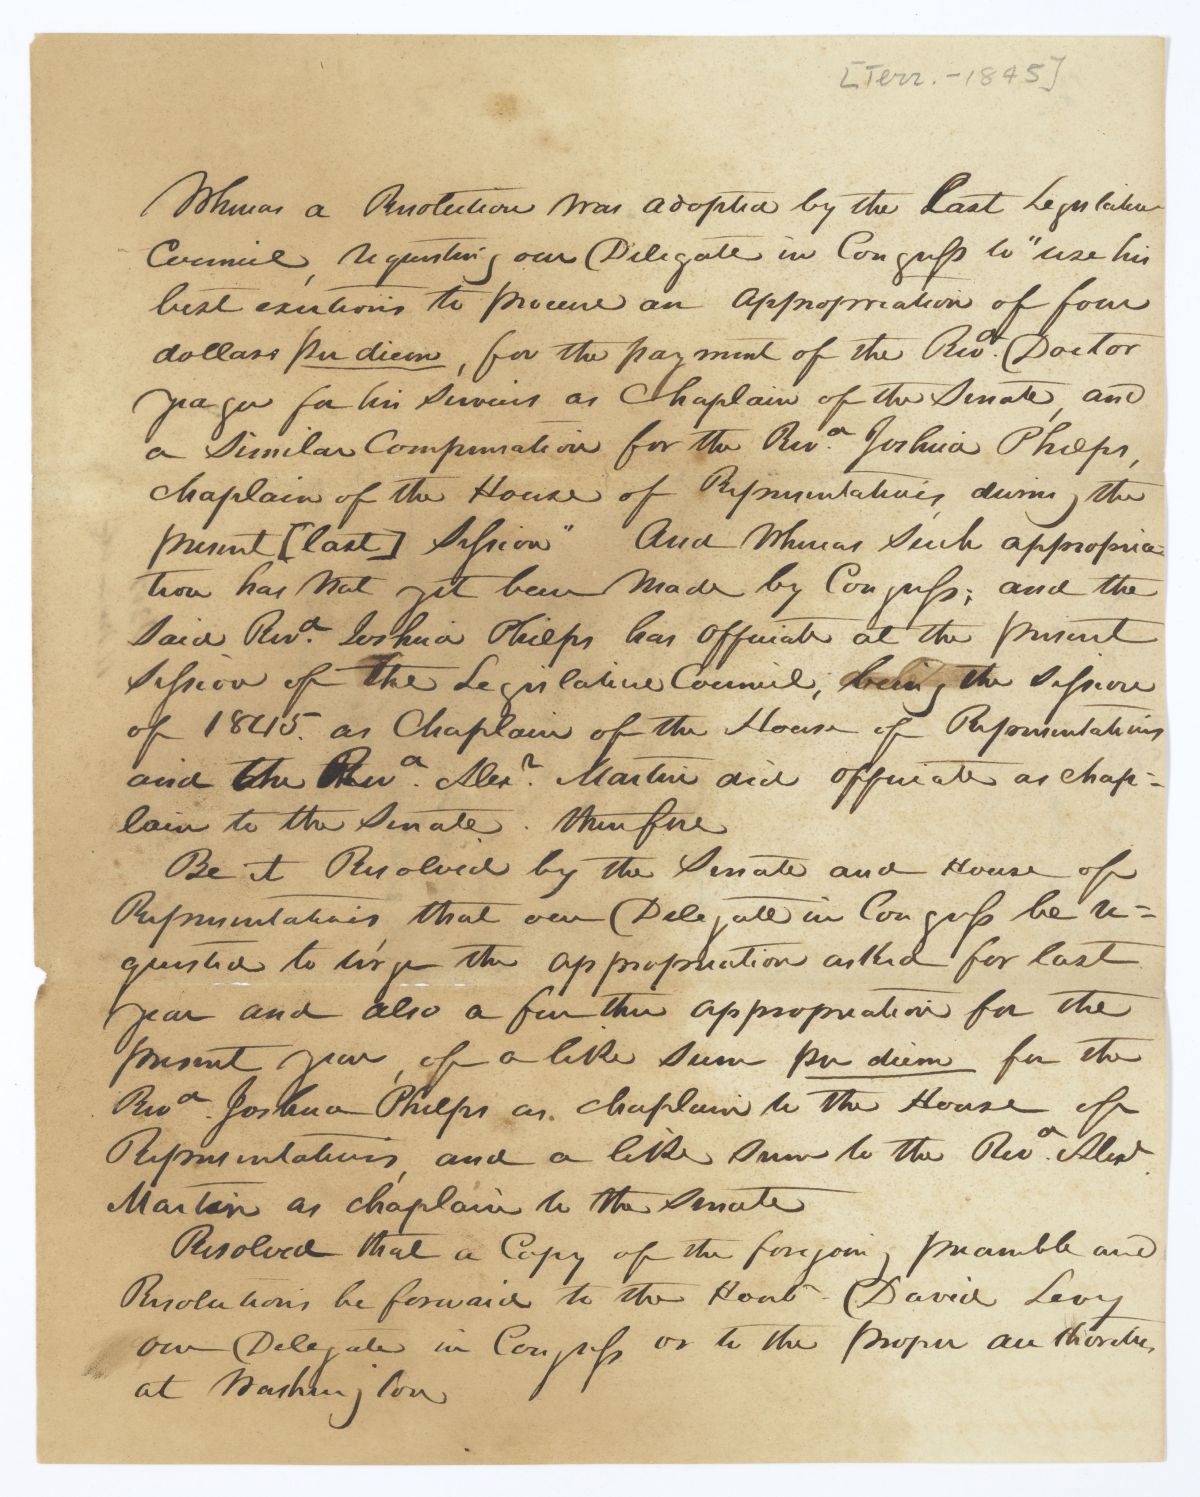 [Terr. - 1845]
Whereas a Resolution was adopted by the Last Legislative
Council, requesting our Delegate in Congress to "use his
best exertions to procure an appropriation of four
dollars per diem, for the payment of the Revd. Doctor
Yager for his services as Chaplain of the Senate, and
a Similar Compensation for the Revd. Joshua Phelps,
Chaplain of the House of Representatives, during the
present [last] Session" And Whereas Such appropria-
tion has Not yet been Made by Congress; and the
Said Revd. Joshua Phelps has officiate at the present
Session of the Legislative Council, being the Session
of 1845. as Chaplain of the House of Representatives
and the Revd. Alexr. Martin did officiate as Chap=
lain to the Senate. therefore
Be it Resolved by the Senate and House of
Representatives that our Delegate in Congress be re=
quested to urge the appropriation asked for last
year and also a further appropriation for the
present year, of a like sum per diem for the
Revd. Joshua Phelps as chaplain to the House of
Representatives, and a like Sum to the Revd. Alexr.
Martin as chaplain to the Senate
Resolved that a Copy of the foregoing preamble and
Resolutions be forward to the Honl. David Levy
our Delegate in Congress or to the proper authorities,
at Washington